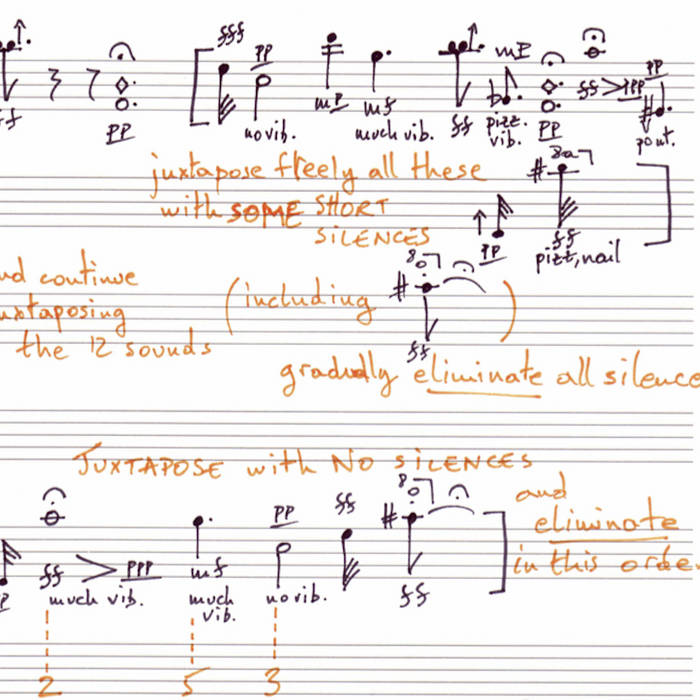 fff
pp
mp
ff
pp
no vib.
mp
mf
much vib.
ff
pizz.
vib.
pp
ff > ppp
pp
pont.
juxtapose freely all these
with SOME SHORT
SILENCES
8a
pp
ff
pizz, nail
and continue
juxtaposing
the 12 sounds
(including
8
)
ff
gradually eliminate all silence
JUXTAPOSE with NO SILENCES
and
eliminate
in this order
pp
ff
8
ff > ppp
much vib.
mf
much
vib.
no vib.
ff
2
5
3